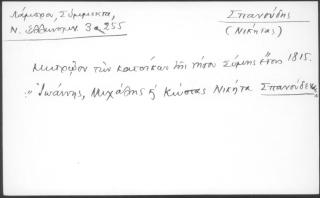 Λάμπρου, Σύμμεικτα,
Ν. Ἑλληνομν. 3α 255
Σπανούδης
(Νικήτας)
Μητρῷον τῶν κατοίκων τῆς νήσου Σύμης ἔτους 1815.
"Ἰωάννης, Μιχάλης ἢ Κώστας Νικήτα Σπανούδες"